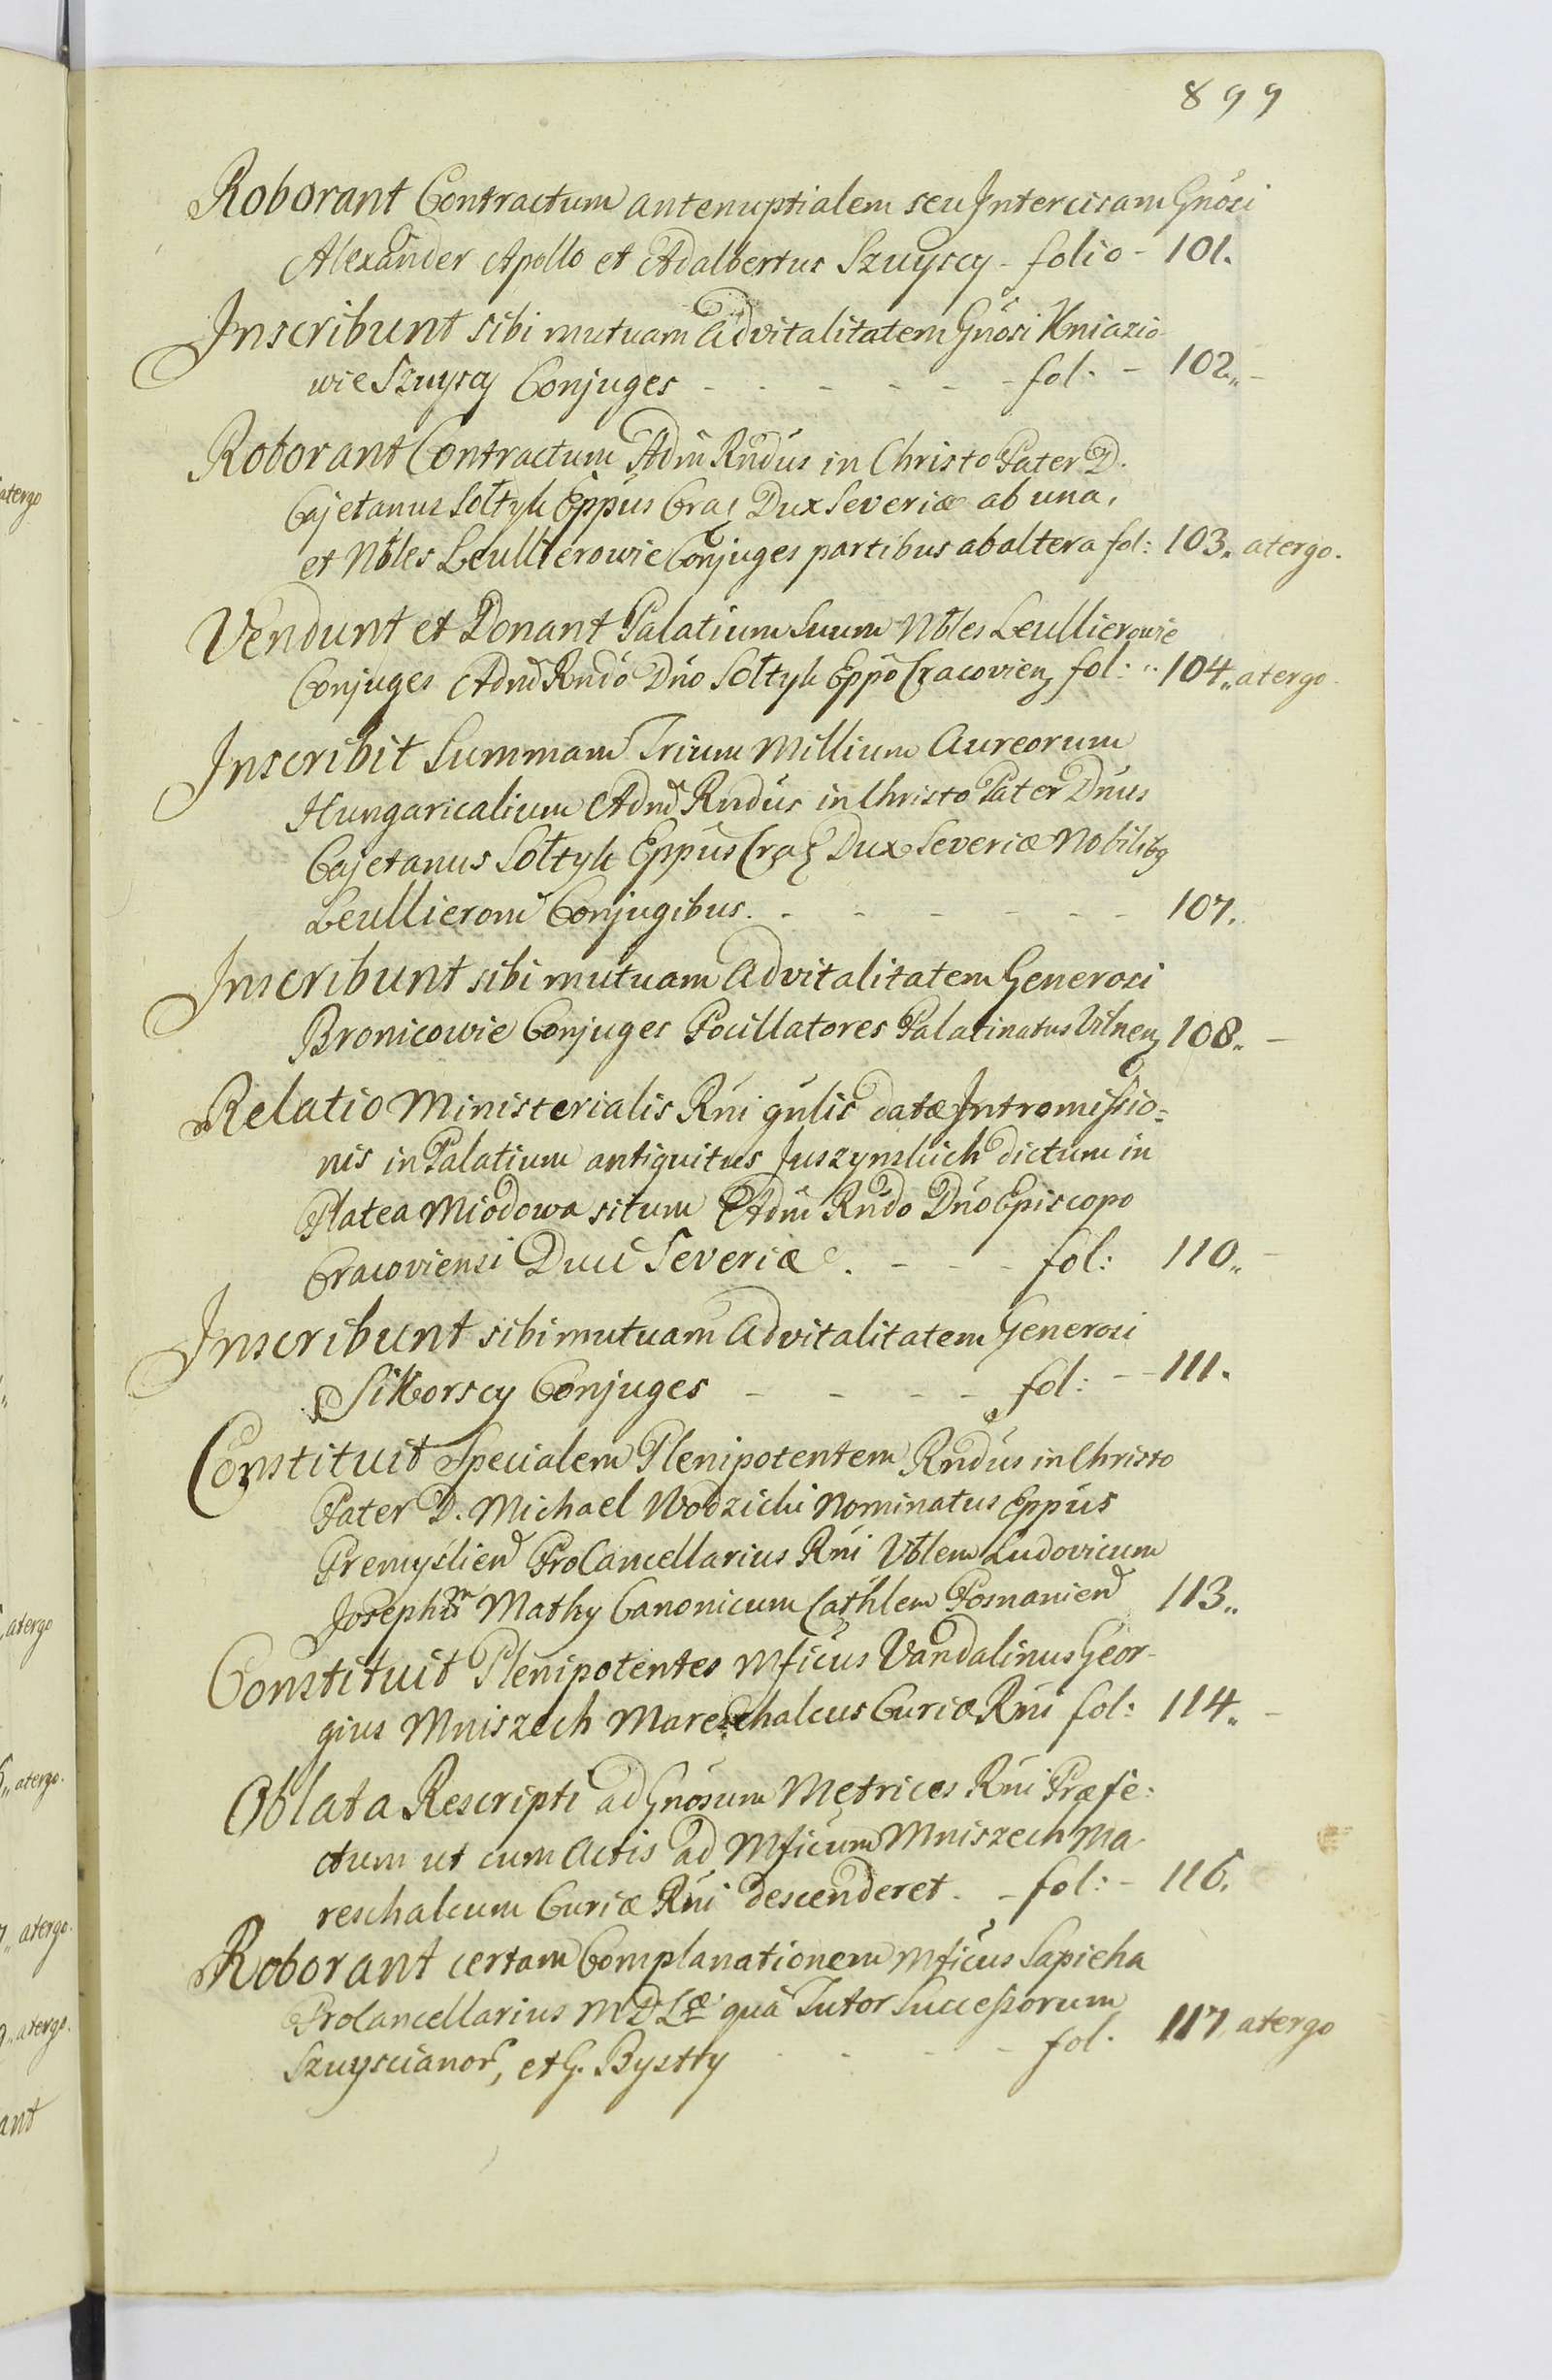 899
Roborant Contractum antenuptialem seu Intercisam Gnosi
Alexander Apollo et Adalbertus Szuyscy - folio - 101.
Inscribunt sibi mutuam advitalitatem Gnosi Kniazio-
wie Szuyscy Conjuges - - - - - fol. - 102.
Roborant Contractum Adm Rndus in Christo Pater D.
Cajetanus Sołtyk Eppus Cra: Dux Severiæ ab una,
et Nbles Leullierowie Conjuges partibus ab altera fol: 103. atergo.
Vendunt et Donant Palatium suum Nbles Leullierowie
Conjuges Adm Rndo Dno Sołtyk Eppo Cracovien fol: 104. atergo
Inscribit Summam Trium Millium Aureorum
Hungaricalium Adm Rndus in Christo Pater Dnus
Cajetanus Sołtyk Eppus Cra: Dux Severiæ Nobilibq
Leullierom Conjugibus. - - - - - - 107.
Inscribunt sibi mutuam advitalitatem Generosi
Bronicowie Conjuges Pocillatores Palatinatus Vilnen 108. -
Relatio Ministerialis Rni gnlis datæ Intromissio=
nis in Palatium antiquitus Juszynskich dictum in
Platea Miodowa situm Adm Rndo Dno Episcopo
Cracoviensi Duci Severiæ. - - - fol: 110. -
Inscribunt sibi mutuam advitalitatem Generosi
Sikorscy Conjuges - - - - fol: - 111.
Constituit Specialem Plenipotentem Rndus in Christo
Pater D. Michael Wodzicki Nominatus Eppus
Premyslien ProCancellarius Rni Vblem Ludovicum
Josephum Mathy Canonicum Cathlem Posnanien 113.
Constituit Plenipotentes Mficus Vandalinus Geor-
gius Mniszech Mareschalcus Curiæ Rni fol: 114. -
Oblata Rescripti ad Gnosum Metrices Rni Præfe:
ctum ut cum Actis ad Mficum Mniszech Ma-
reschalcum Curiæ Rni descenderet. - fol: - 116.
Roborant certam Complanationem Mficus Sapieha
ProCancellarius M D Læ qua Tutor Successorum
Szuyscianor, et G. Bystty - - - - fol. 117. atergo